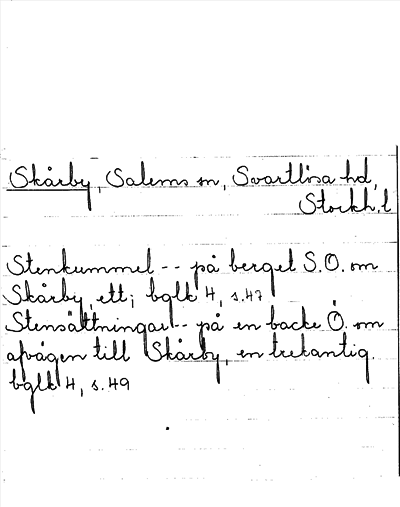 Skårby, Salems sn, Svartlösa hd,
Stockh.l
Stenkummel -- på berget S.O. om
Skårby, ett; bglk 4, s.47
Stensättningar -- på en backe Ö. om
afvägen till Skårby, en trekantig.
bglk 4, s.49